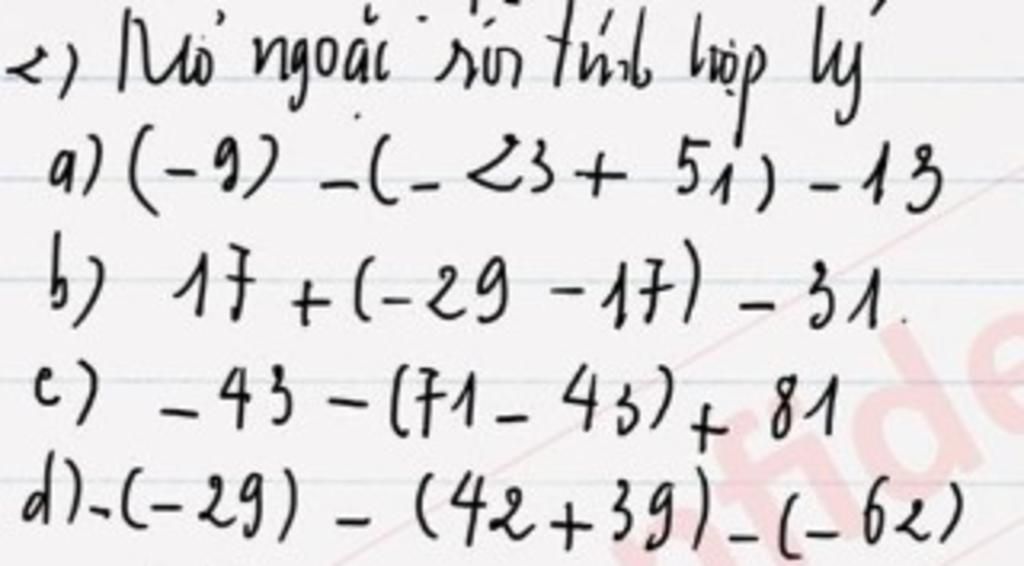 2) Mở ngoặc rồi tính hợp lý
a) (-9) - (- 23 + 51) - 13
b) 17 + (-29 - 17) - 31.
c) - 43 - (71 - 43) + 81
d) - (-29) - (42 + 39) - (- 62)
nfide